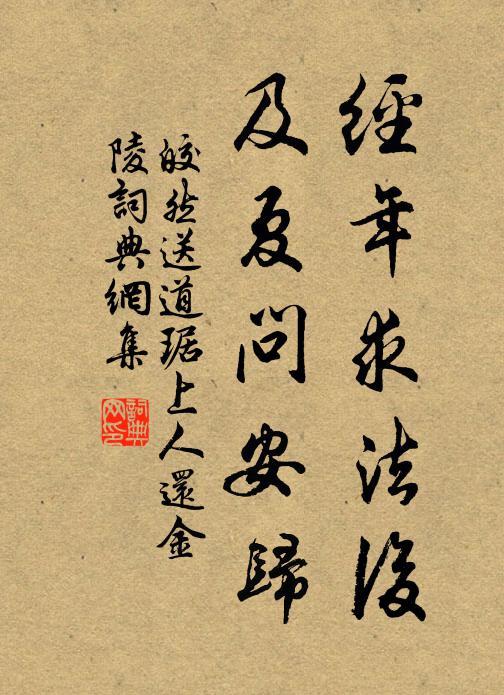 經年求法後
及夏問安歸
皎然送道琚上人還金
陵詞典網集
詞典
网印